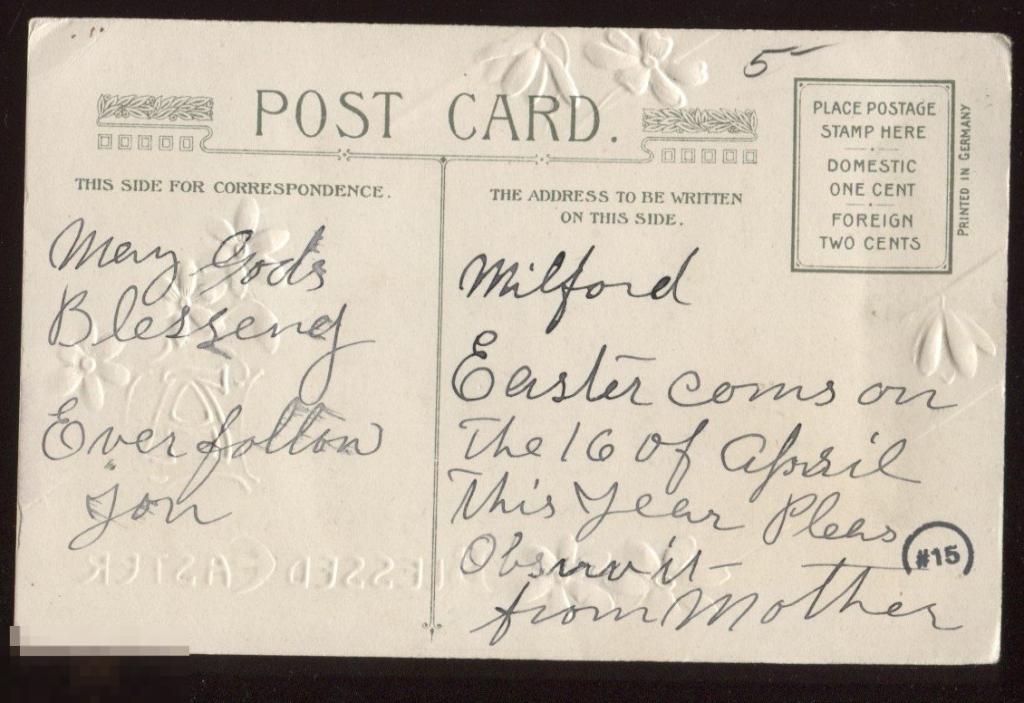 5
POST CARD.
THIS SIDE FOR CORRESPONDENCE.
THE ADDRESS TO BE WRITTEN
ON THIS SIDE.
PLACE POSTAGE
STAMP HERE
DOMESTIC
ONE CENT
FOREIGN
TWO CENTS
PRINTED IN GERMANY
May Gods
Blesseng
Ever follow
you
Milford
Easter coms on
The 16 of April
This Year Pleas
Observ it
from Mother
#15
BLESSED EASTER